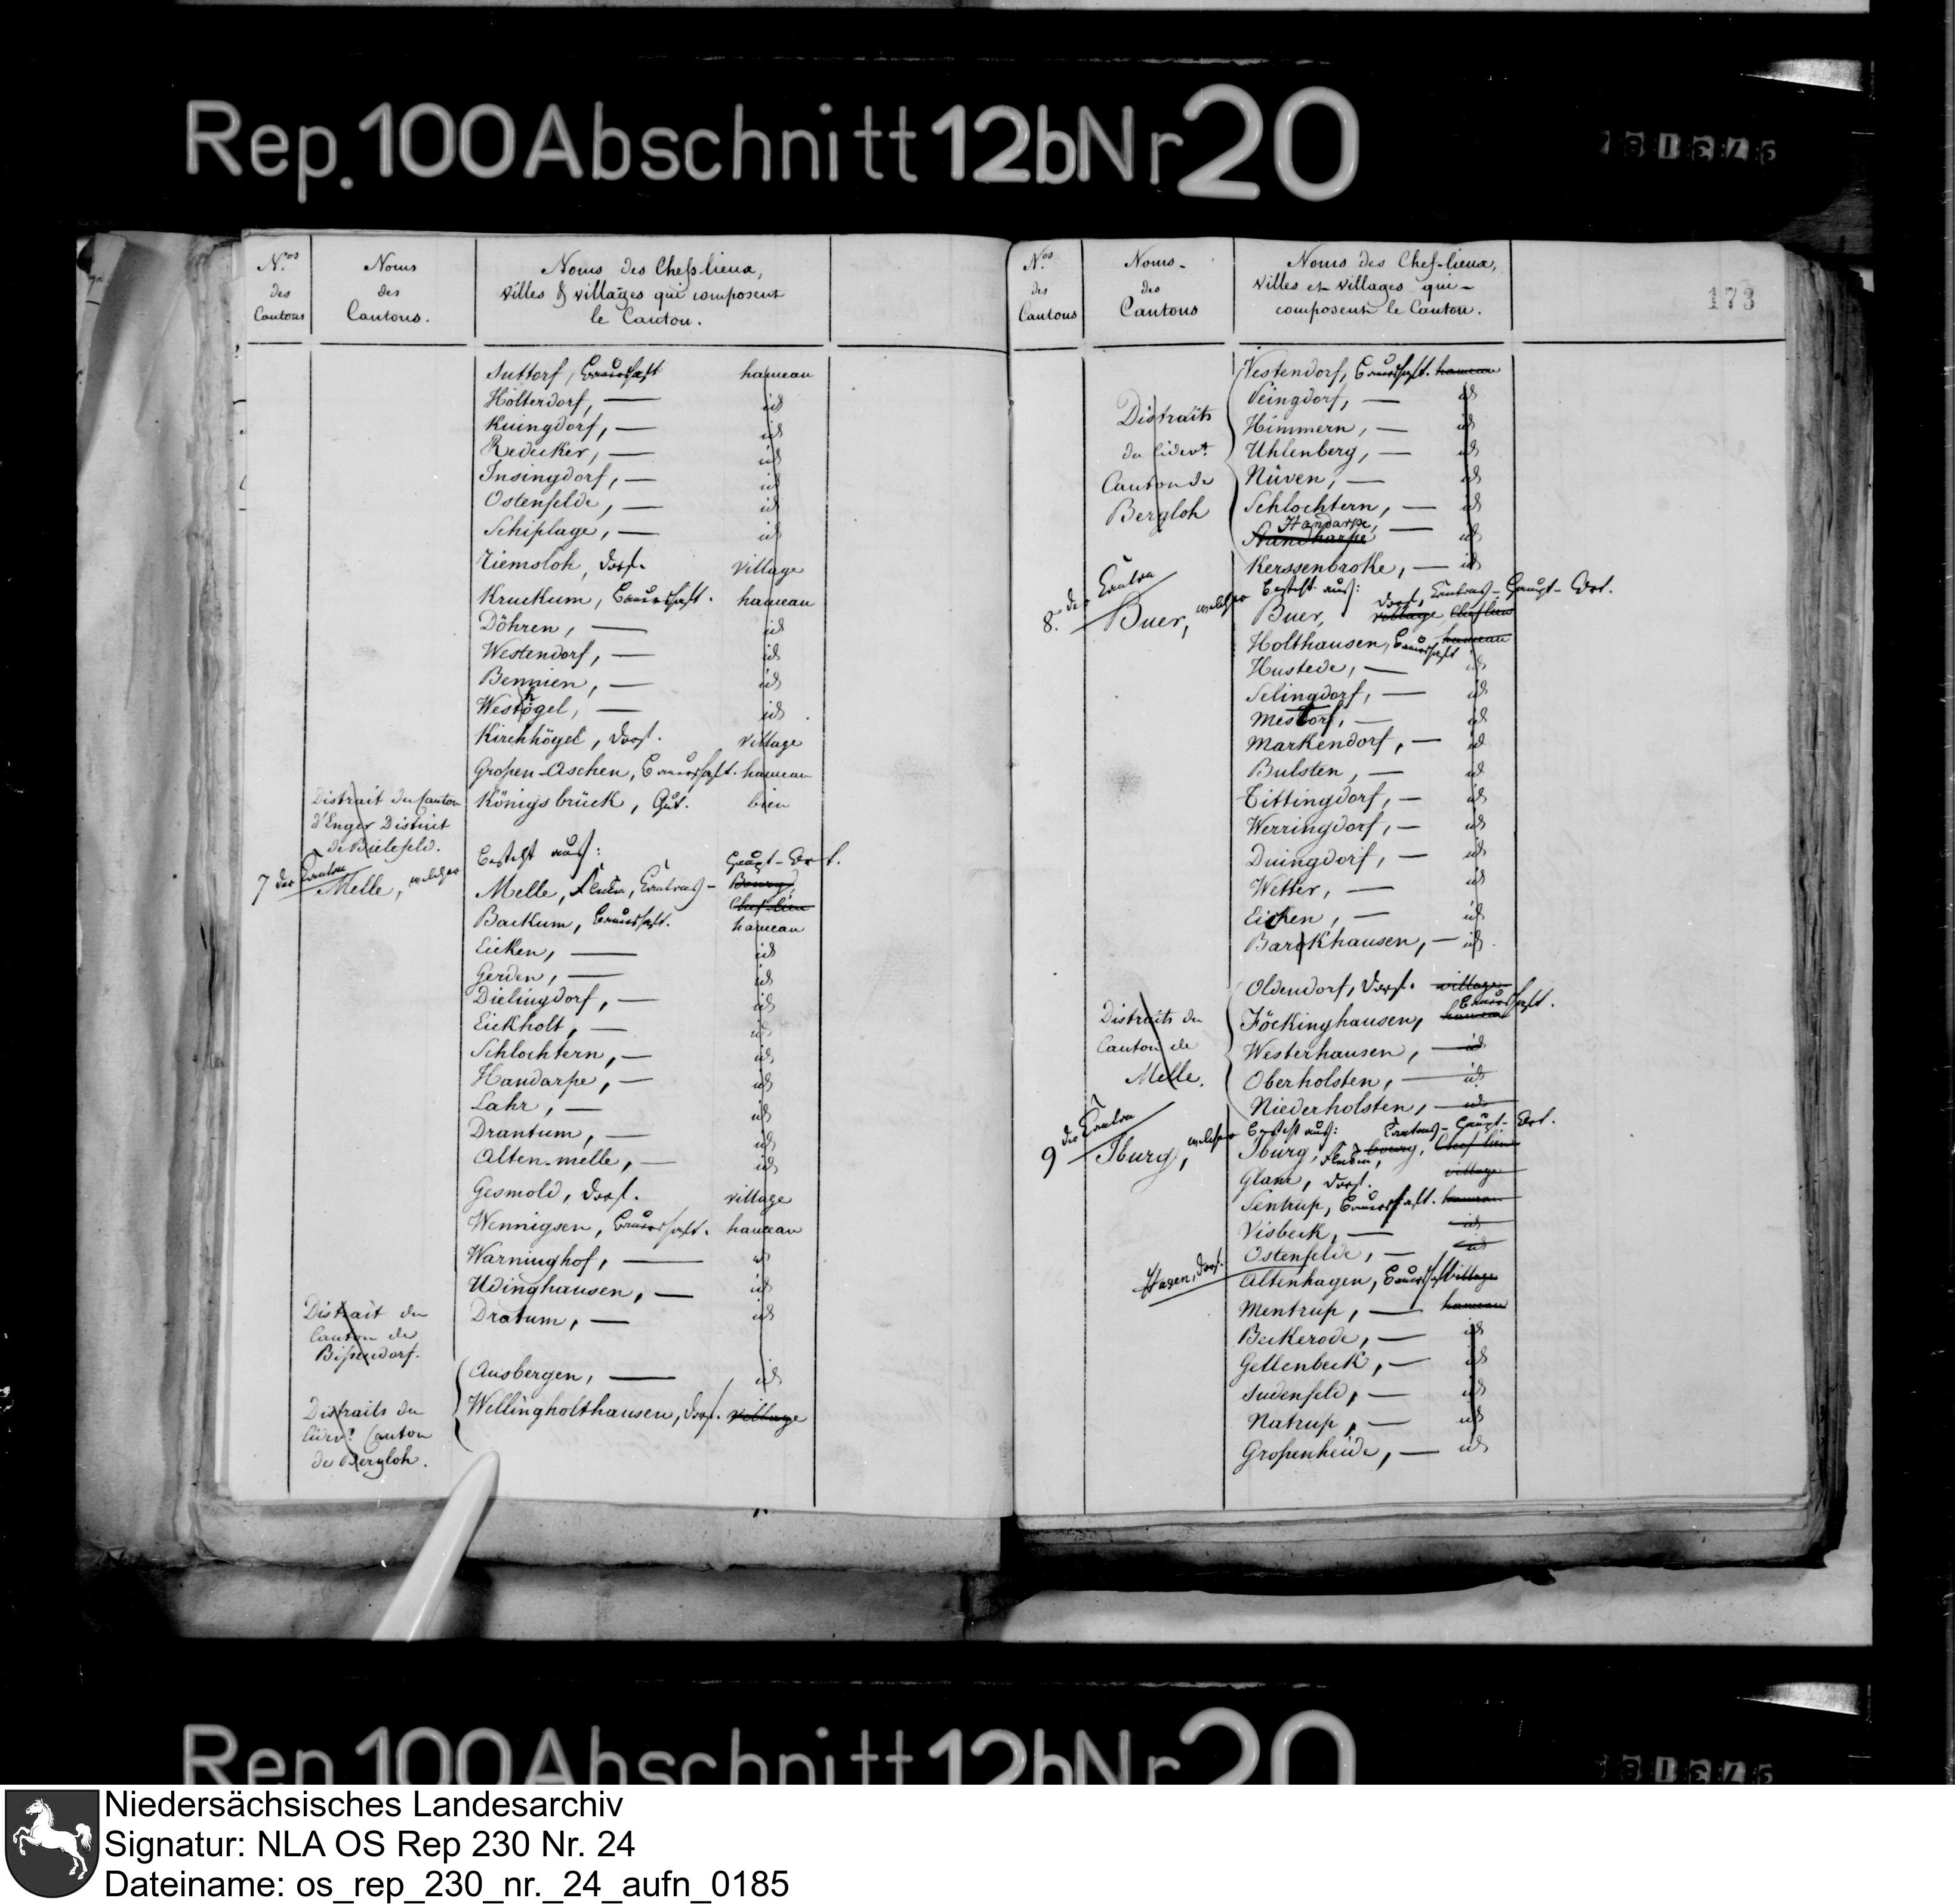 Rep. 100 Abschnitt 12b Nr 20
N.os
des
Cantons
Noms
des
Cantons.
Noms des Chefs lieux,
villes & villages qui composent
le Canton.
Suttorf, Bauerschaft hameau
Hölterdorf, — id
Kuingdorf, — id
Redecker, — id
Insingdorf, — id
Ostenfelde, — id
Schiplage, — id
Riemsloh, Dorf. village
Kruckum, Bauerschaft. hameau
Döhren, — id
Westendorf, — id
Bennien, — id
Westhögel, — id
Kirchhögel, Dorf. village
Großen-Aschen, Bauerschaft. hameau
Distrait du Canton
d'Enger District
de Bielefeld.
Königsbrück, Gut. bien
7 der Canton Melle, welcher
besteht aus:
Melle, Flecken, Cantons- Haupt-Ort. Bourg, Chef lieu
Backum, Bauerschaft. hameau
Eicken, — id
Gerden, — id
Dielingdorf, — id
Eickholt, — id
Schlochtern, — id
Handarpe, — id
Lahr, — id
Drantum, — id
Alten-melle, — id
Gesmold, Dorf. village
Wennigsen, Bauerschaft. hameau
Warninghof, — id
Udinghausen, — id
Distrait du
Canton de
Bißendorf.
Dratum, — id
Distraits du
Canton
de Bergloh.
Ausbergen, — id
Wellingholthausen, Dorf. village
N.os
des
Cantons
Noms
des
Cantons
Noms des Chef-lieux,
villes et villages qui
composent le Canton.
173
Distraits
du
Canton de
Bergloh
Westendorf, Bauerschaft. hameau
Peingdorf, — id
Himmern, — id
Uhlenberg, — id
Nüven, — id
Schlochtern, — id
Handarpe, — id
Kerssenbroke, — id
8. der Canton Buer, welcher besteht aus:
Buer, Dorf, Cantons-Haupt-Ort. village Chef lieu
Holthausen, Bauerschaft hameau
Hustede, — id
Selingdorf, — id
Mestorf, — id
Markendorf, — id
Bulsten, — id
Tittingdorf, — id
Werringdorf, — id
Duingdorf, — id
Wetter, — id
Eicken, — id
Barkhausen, — id.
Distraits du
Canton de
Melle.
Oldendorf, Dorf. village
Föckinghausen, Bauerschaft. hameau
Westerhausen, — id
Oberholsten, — id
Niederholsten, — id
9 der Canton Iburg, welcher besteht aus:
Iburg, Flecken, Cantons-Haupt-Ort. bourg, Chef lieu
Glane, Dorf. village
Sentrup, Bauerschaft. hameau
Visbeck, — id
Ostenfelde, — id
Hagen, Dorf.
Altenhagen, Bauerschaft village
Mentrup, — hameau
Beckerode, — id
Gellenbeck, — id
Sudenfeld, — id
Natrup, — id
Großenheide, — id
Rep. 100 Abschnitt 12b Nr 20
Niedersächsisches Landesarchiv
Signatur: NLA OS Rep 230 Nr. 24
Dateiname: os_rep_230_nr._24_aufn_0185